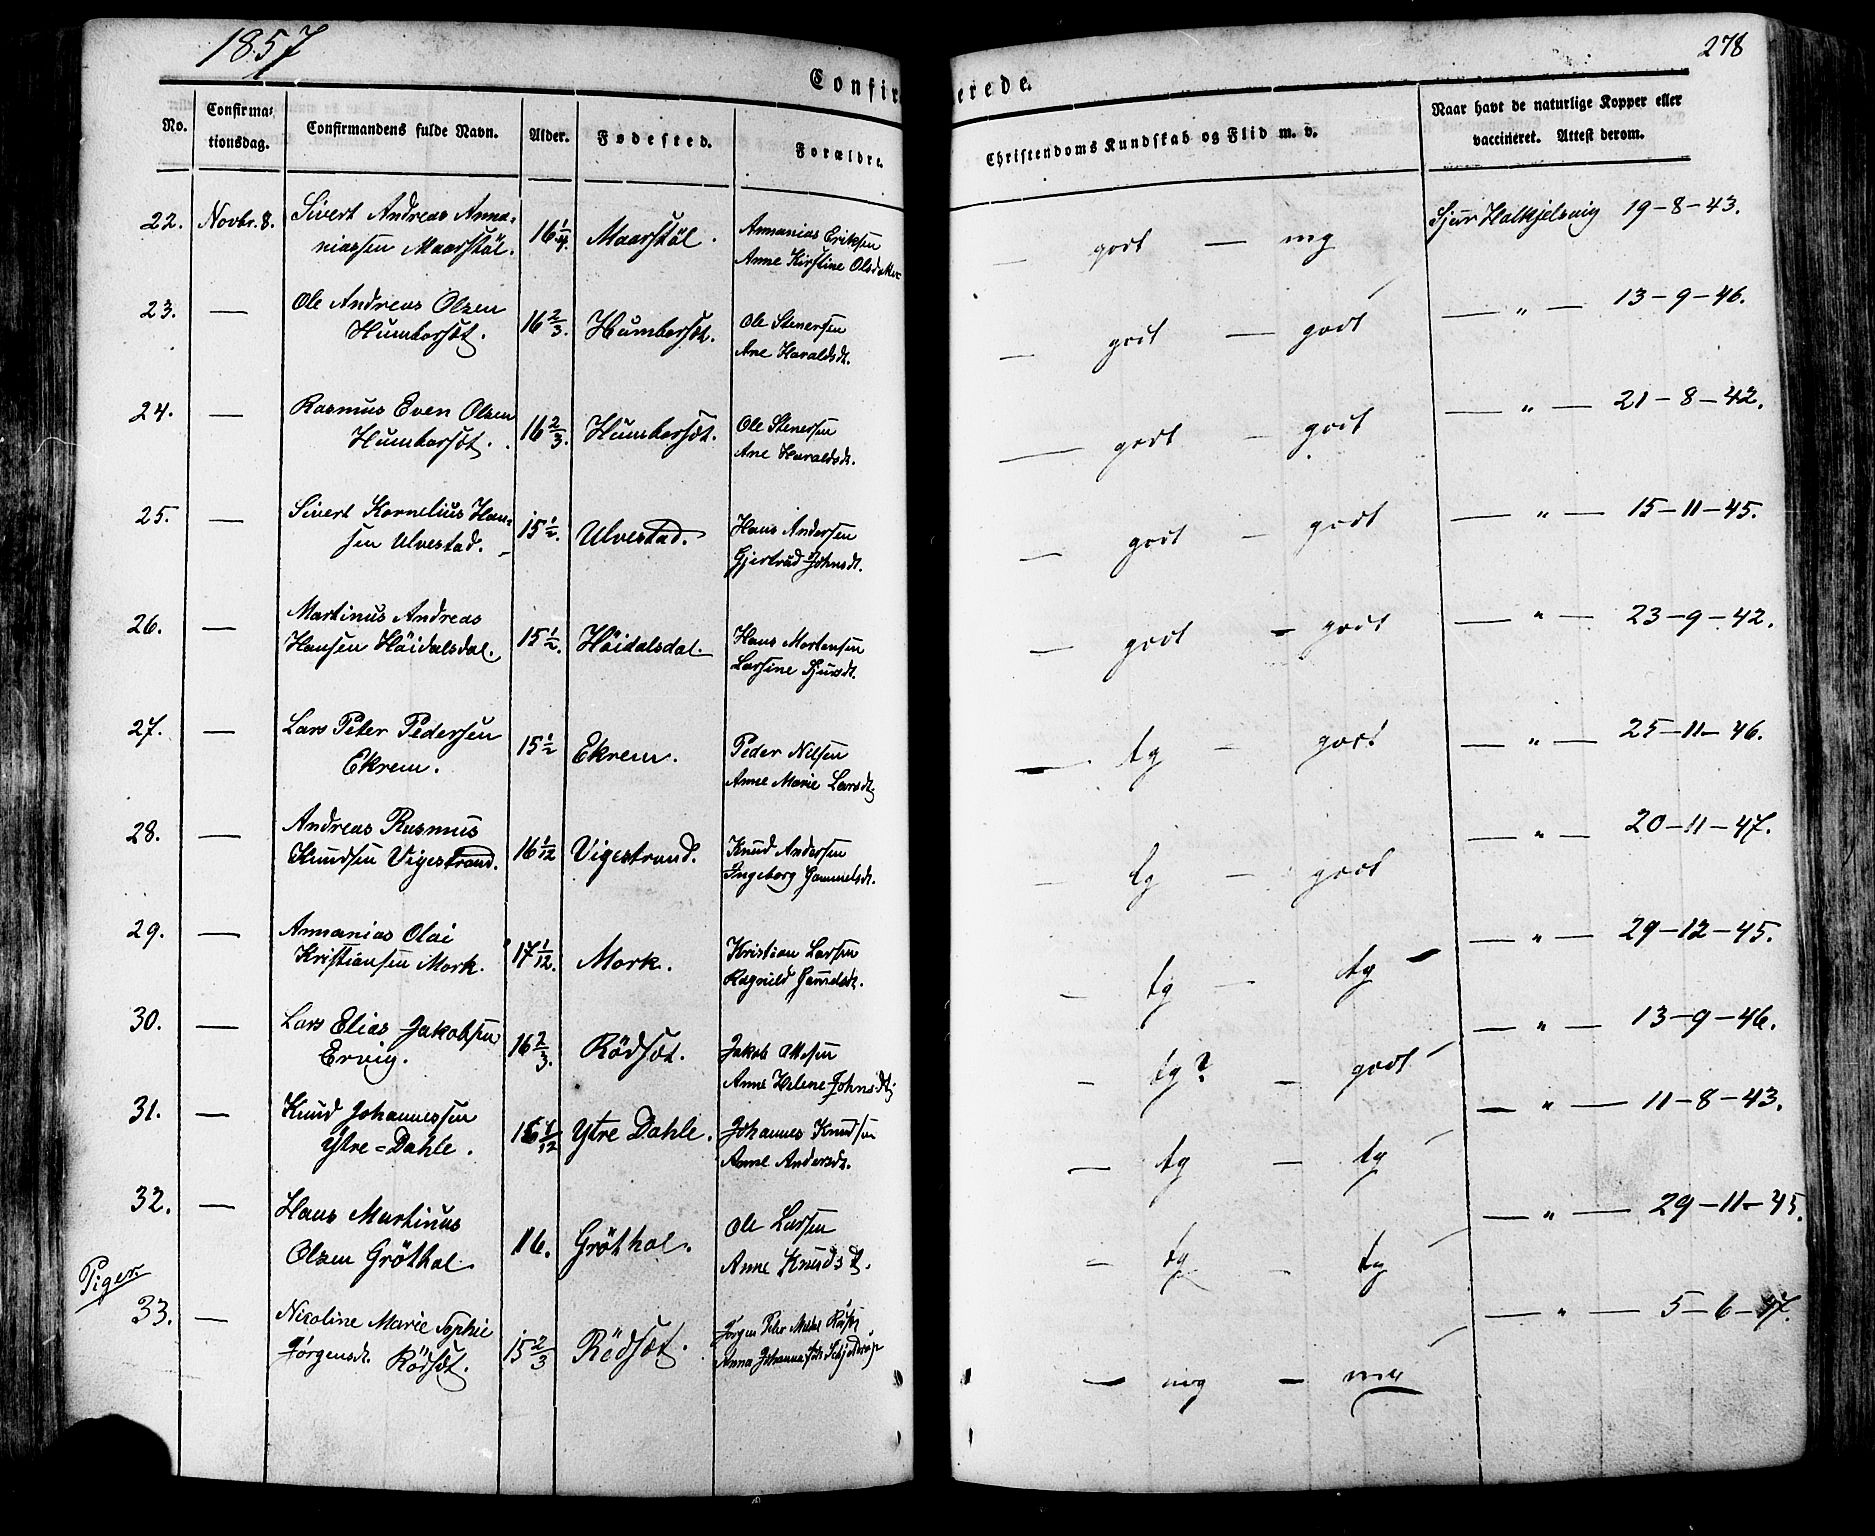 1857
278
Confirmerede.
No.
Confirma-
tionsdag.
Confirmandens fulde Navn.
Alder.
Fødested.
Forældre.
Christendoms Kundskab og Flid m. v.
Naar havt de naturlige Kopper eller
vaccineret. Attest derom.
22. Novbr. 8. Sivert Andreas Anna-
niassen Maarstöl. 16 1/4. Maarstöl. Annanias Eriksen
Anne Kirstine Olsdatter
— godt — mg Sjur Halkjelsvig 19-8-43.
23. — Ole Andreas Olsen
Humborsæt. 16 2/3. Humborsæt. Ole Stenersen
Ane Haraldsdt.
— godt — godt — " — 13-9-46.
24. — Rasmus Even Olsen
Humborsæt. 16 2/3. Humborsæt. Ole Stenersen
Ane Haraldsdt.
— godt — godt — " — 21-8-42.
25. — Sivert Kornelius Han-
sen Ulvestad. 15 1/2. Ulvestad. Hans Andersen
Gjertrud Johnsdt.
— godt — godt — " — 15-11-45.
26. — Martinus Andreas
Hansen Höidalsdal. 15 1/2. Höidalsdal. Hans Mortensen
Larsine Sjursdt.
— godt — godt — " — 23-9-42.
27. — Lars Peter Pedersen
Ekrem. 15 1/2 Ekrem. Peder Nilsen
Anne Marie Larsdt
— tg — godt — " — 25-11-46.
28. — Andreas Rasmus
Knudsen Vigestrand. 16 1/12 Vigestrand. Knud Andersen
Ingeborg Gammelsdt.
— tg — godt — " — 20-11-47.
29. — Annanias Olai
Kristiansen Mork. 17 1/12. Mork. Kristian Larsen
Ragnild Gamelsdt.
— tg — tg — " — 29-12-45.
30. — Lars Elias Jakobsen
Ervig. 16 2/3. Rödsæt. Jakob Ottesen
Anne Helene Johnsdt
— tg? — godt — " — 13-9-46.
31. — Knud Johannessen
Ytre=Dahle. Ytre Dahle. Johannes Knudsen
Anne Andersdt.
— tg — tg — " — 11-8-43.
32. — Hans Martinus
Olsen Gröthol. 16. Gröthol. Ole Larsen
Anne Knudsdt.
— tg — tg — " — 29-11-45.
Piger.
33. — Nicoline Marie Sophie
Jørgensdt. Rödsæt. 15 2/3 Rödsæt. Jørgen Peter
Anna Johanna
— mg — — " — 5-6-